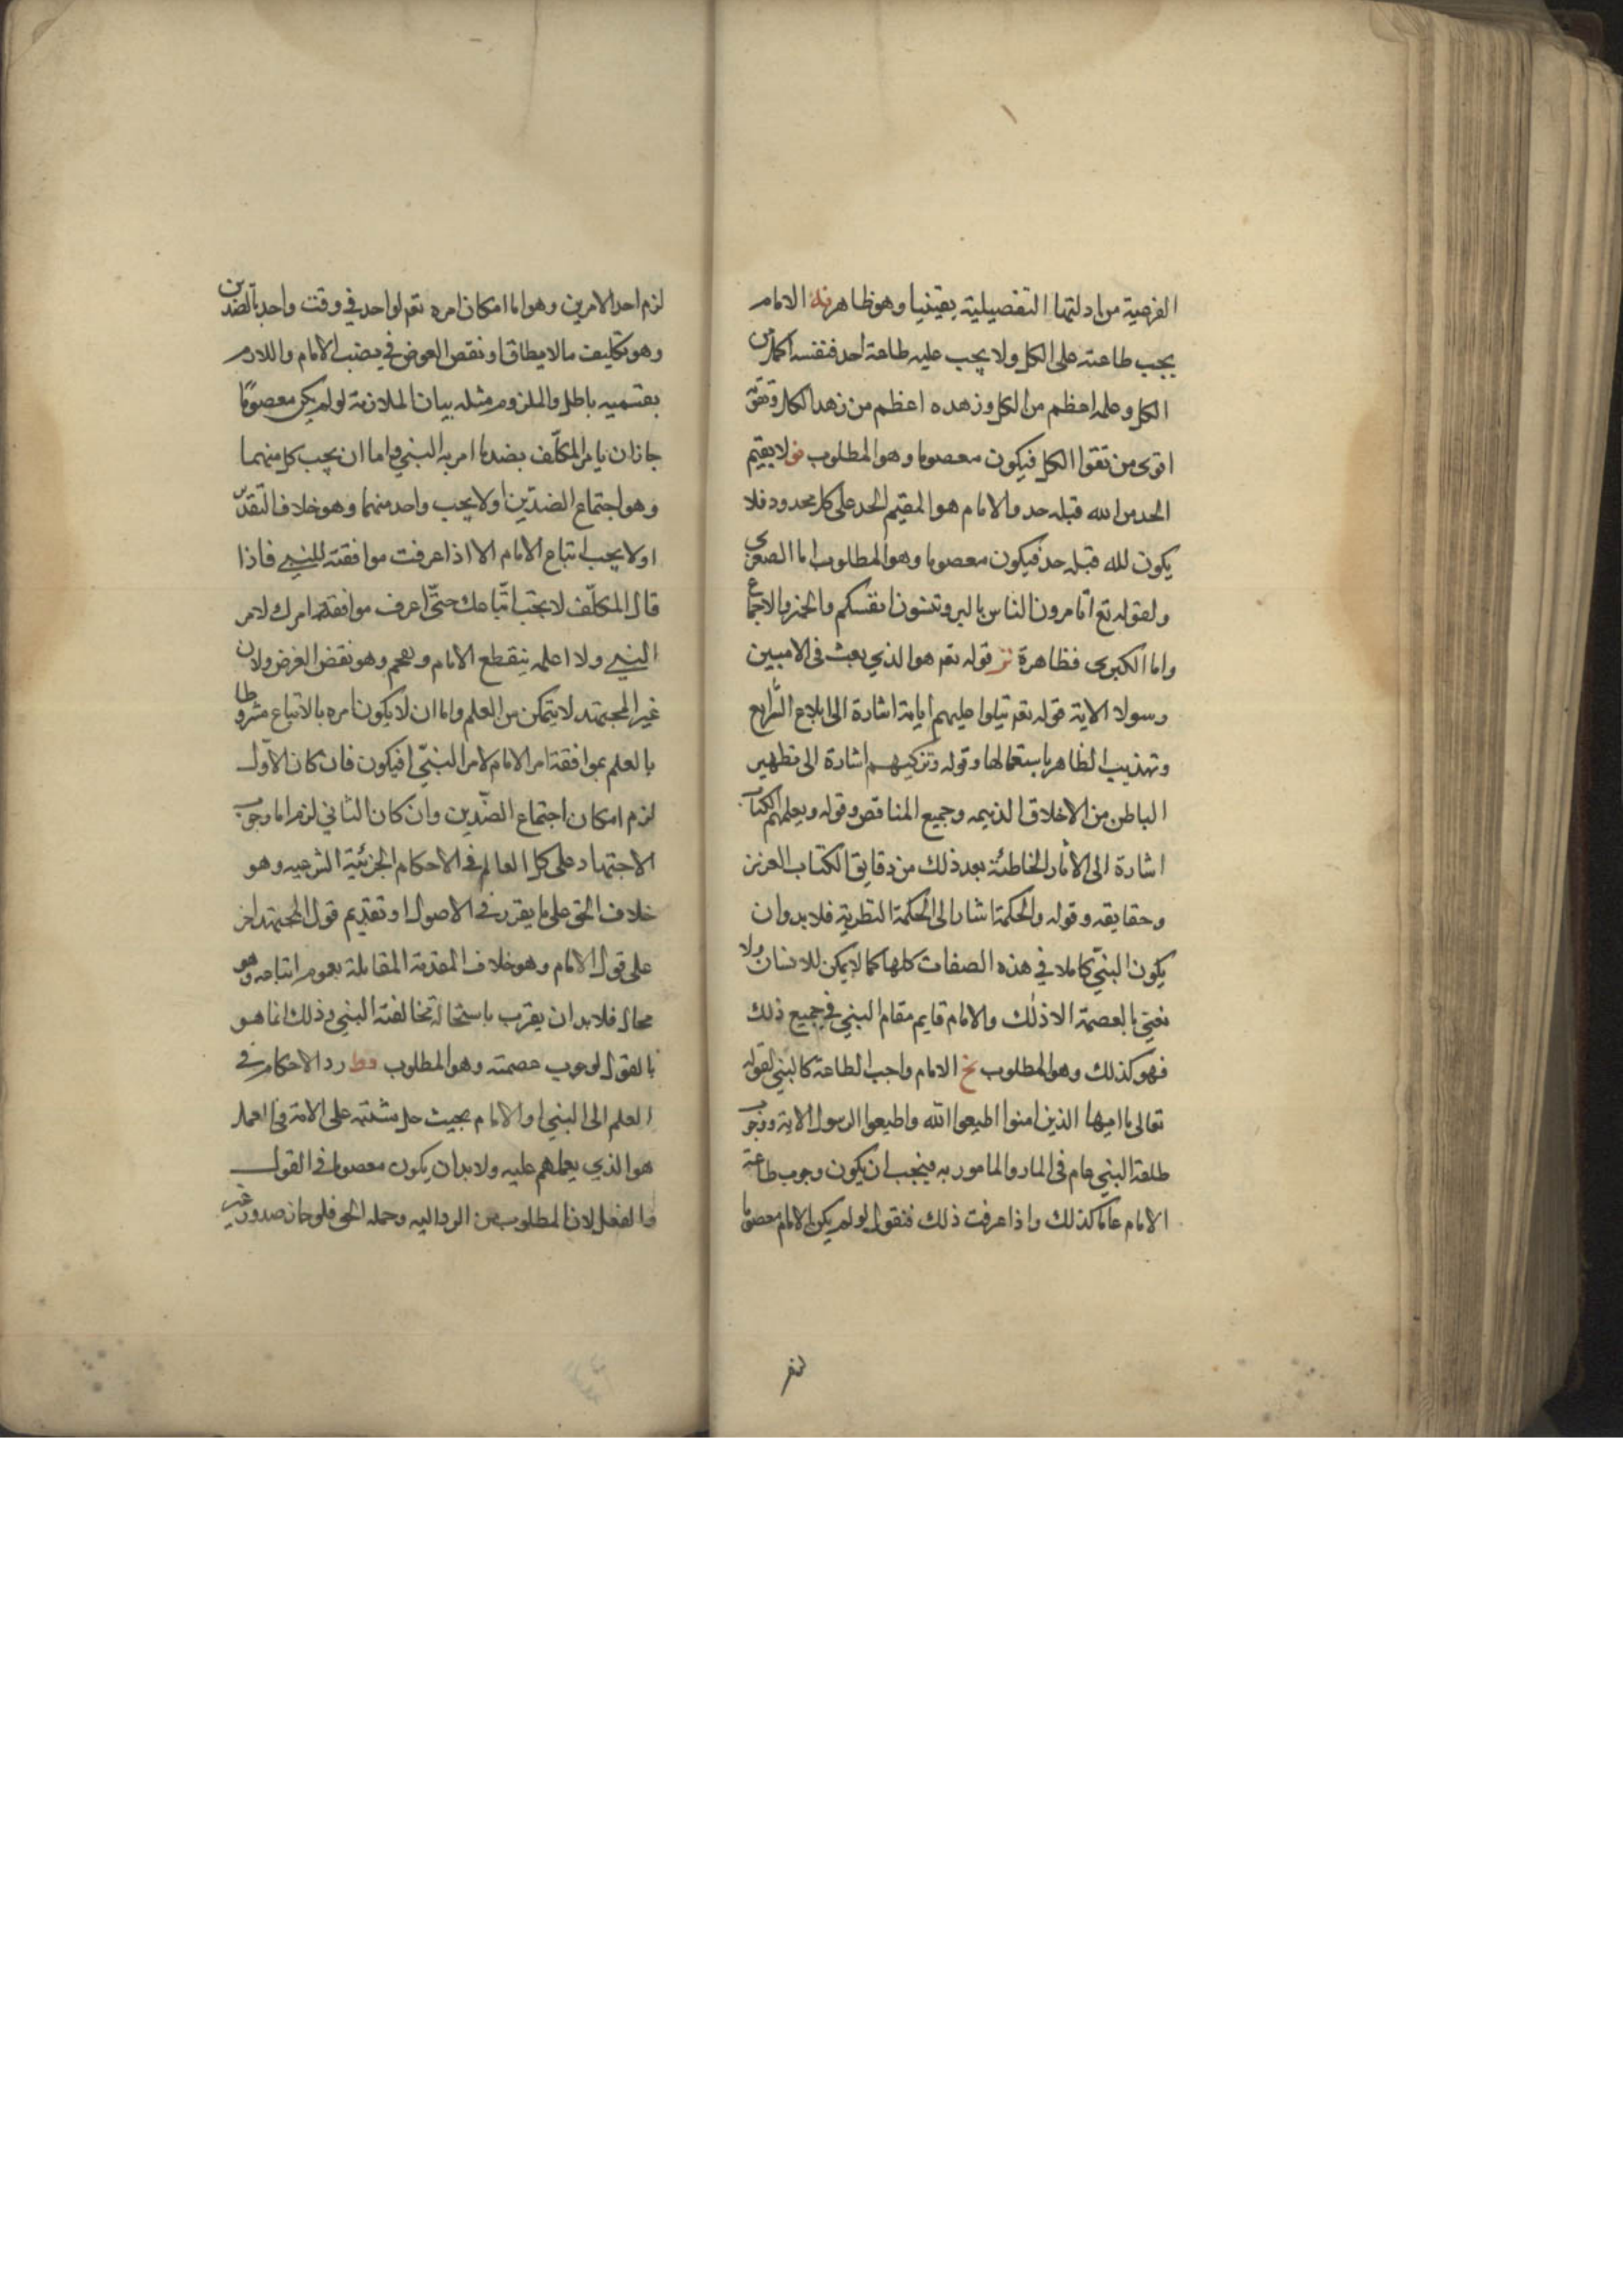 الفرعية من ادلتها التفصيلية يقينيا وهو ظاهر نه الامام
يجب طاعته على الكل ولا يجب عليه طاعة احد فنفسه اكمل من
الكل وعلمه اعظم من الكل وزهده اعظم من زهد الكل وتقوته
اقوى من تقوا الكل فيكون معصوما وهو المطلوب نو لا يقيم
الحد من الله قبله حد والامام هو المقيم الحد على كل محدود فلا
يكون لله قبله حد فيكون معصوما وهو المطلوب اما الصغرى
ولقوله تع اتامرون الناس بالبر وتنسون انفسكم والخبر والاجماع
واما الكبرى فظاهرة نز قوله تعم هو الذي بعث في الاميين
رسولا الاية قوله تعم تيلوا عليهم اياته اشارة الى ابلاغ الشرايع
وتهذيب الظاهر باستعمالها وقوله وتزكيهم اشارة الى تطهير
الباطن من الاخلاق الذميمه وجميع المناقص وقوله ويعلمهم الكتاب
اشارة الى الاثار الخاطئة بعد ذلك من دقايق الكتاب العزيز
وحقايقه وقوله والحكمة اشار الى الحكمة النظرية فلا بد وان
يكون النبي كاملا في هذه الصفات كلها كما لا يمكن للانسان ولا
نعني بالعصمة الا ذلك والامام قايم مقام النبي في جميع ذلك
فهو كذلك وهو المطلوب نح الامام واجب الطاعة كالنبي لقوله
تعالى يا ايها الذين امنوا اطيعوا الله واطيعوا الرسول الاية ووجوب
طاعة النبي عام في المار والمامور به فيجب ان يكون وجوب طاعة
الامام عاما كذلك واذا عرفت ذلك فنقول لو لم يكن الامام معصوما
لزم احد الامرين وهو اما امكان امره تعم لواحد في وقت واحد بالضدين
وهو تكليف ما لا يطاق او نقص العوض في نصب الامام واللازم
بقسميه باطل والملزوم مثله بيان الملازمة لو لم يكن معصوما
جاز ان يامر المكلف بضد ما امر به النبي فاما ان يجب كل منهما
وهو اجتماع الضدين او لا يجب واحد منهما وهو خلاف التقدس
او لا يجب اتباع الامام الا اذا عرفت موافقته للنبي فاذا
قال المكلف لا يجب اتباعك حتى اعرف موافقة امرك لامر
النبي ولا اعلمه ينقطع الامام ويفحم وهو نقض الغرض ولان
غير المجتهد لا يتمكن من العلم واما ان لا يكون امره بالاتباع مشروطا
بالعلم بموافقة امر الامام لامر النبي افيكون فان كان الاول
لزم امكان اجتماع الضدين وان كان الثاني لزم اما وجوب
الاجتهاد على كل العالم في الاحكام الجزئية الشرعيه وهو
خلاف الحق على ما يقرر في الاصول او تقديم قول المجتهد اخر
على قول الامام وهو خلاف المقدمة المقابلة بعموم اتباعه وهو
محال فلا بد ان يقرب باستحالة مخالفته النبي وذلك انما هو
بالقول لوجوب عصمته وهو المطلوب نط رد الاحكام في
العلم الى النبي او الامام بحيث حل مشتبه على الامة في العمل
هو الذي يعملهم عليه ولا بد ان يكون معصوما في القول
والفعل لان المطلوب من الرد اليه وحمله الحق فلو جاز صدور غير